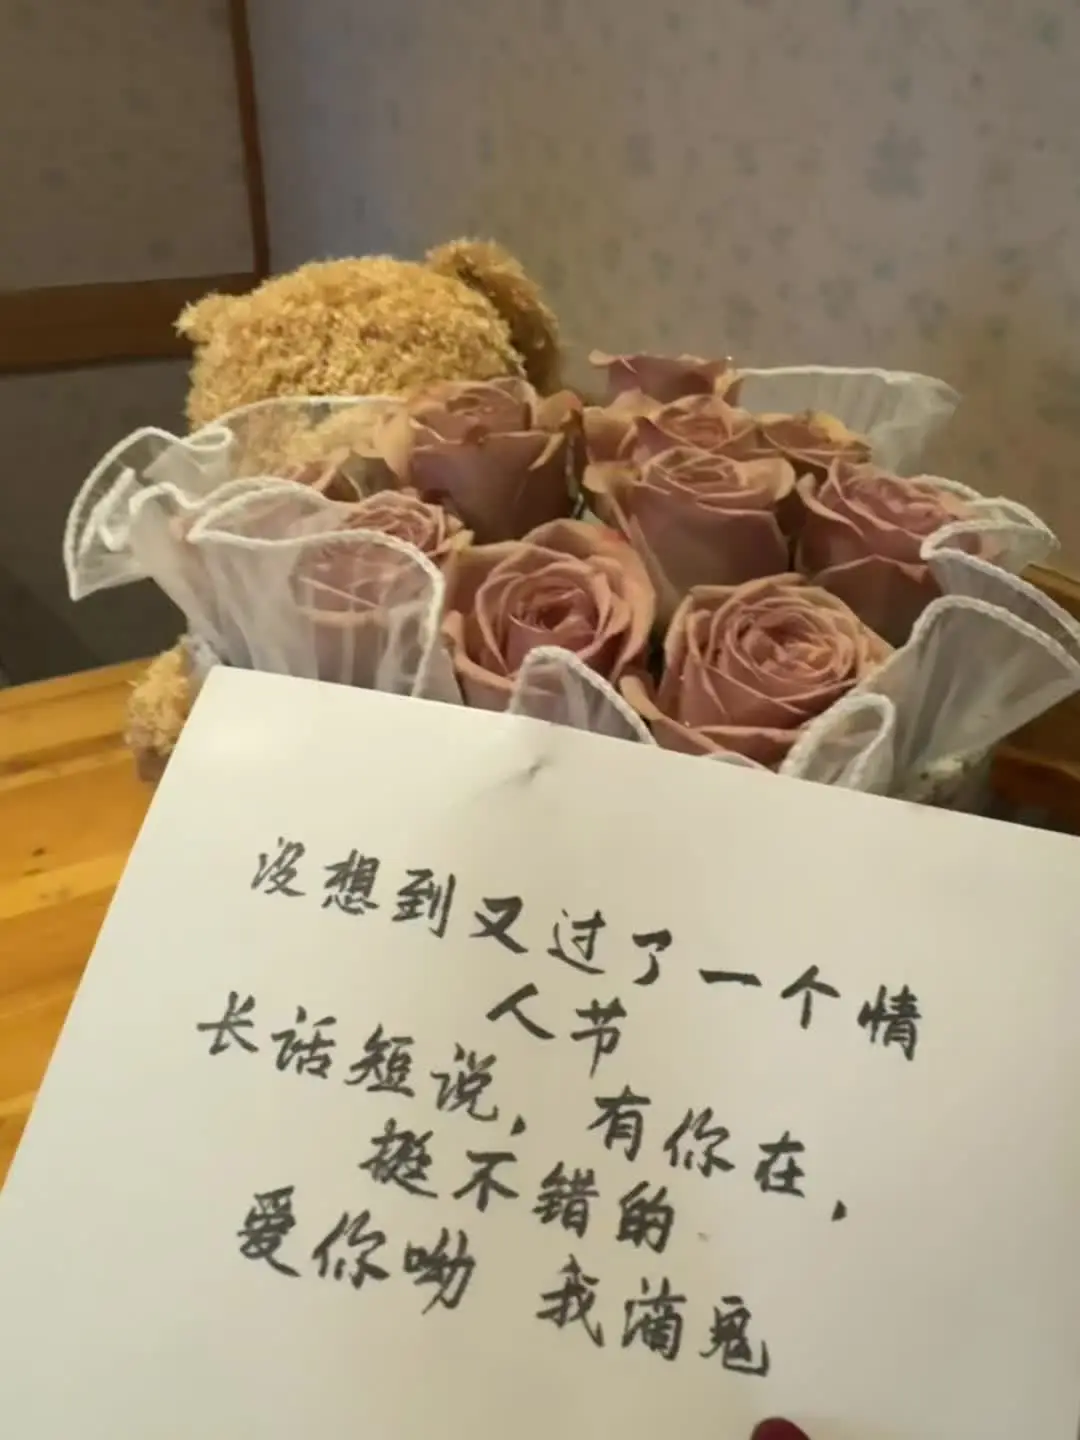 没想到又过了一个情
人节
长话短说，有你在，
挺不错的
爱你呦 我滴鬼